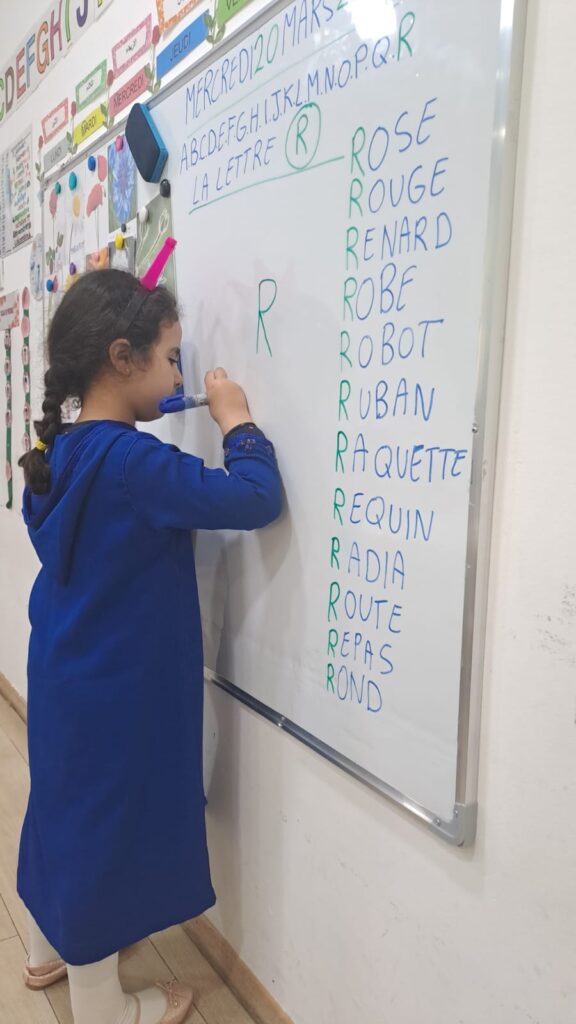 CDEFGHIJ
LUNDI
MARDI
MERCREDI
JEUDI
MERCREDI 20 MARS 2
ABCDEFGHIJKLMNOPQR
LA LETTRE R
R
ROSE
ROUGE
RENARD
ROBE
ROBOT
RUBAN
RAQUETTE
REQUIN
RADIA
ROUTE
REPAS
ROND